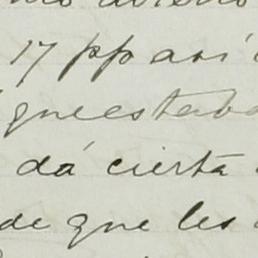 17 pp así
que estaba
dá cierta
de que les